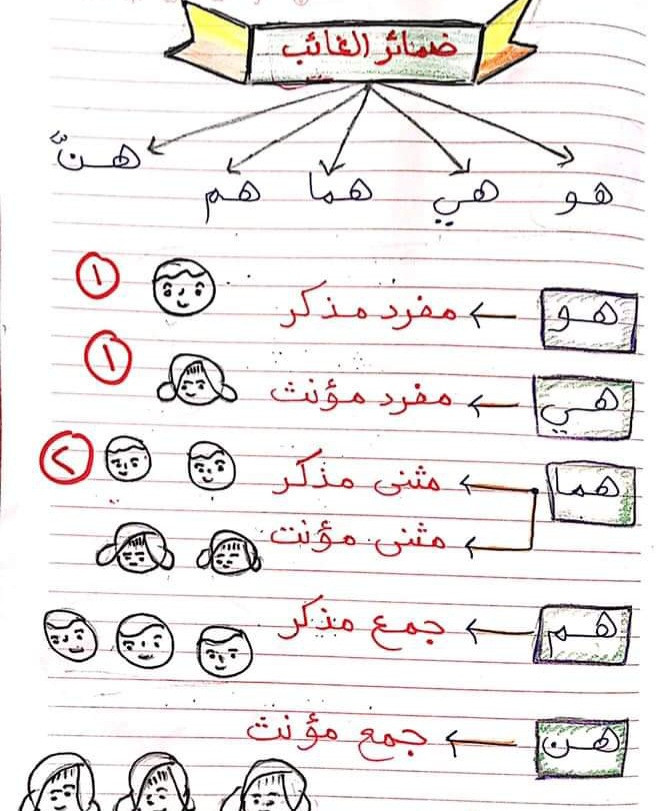 ضمائر الغائب
هو هي هما هم هنّ
هو ← مفرد مذكر ١
هي ← مفرد مؤنث ١
هما ← مثنى مذكر ٢
← مثنى مؤنث
هم ← جمع مذكر
هن ← جمع مؤنث